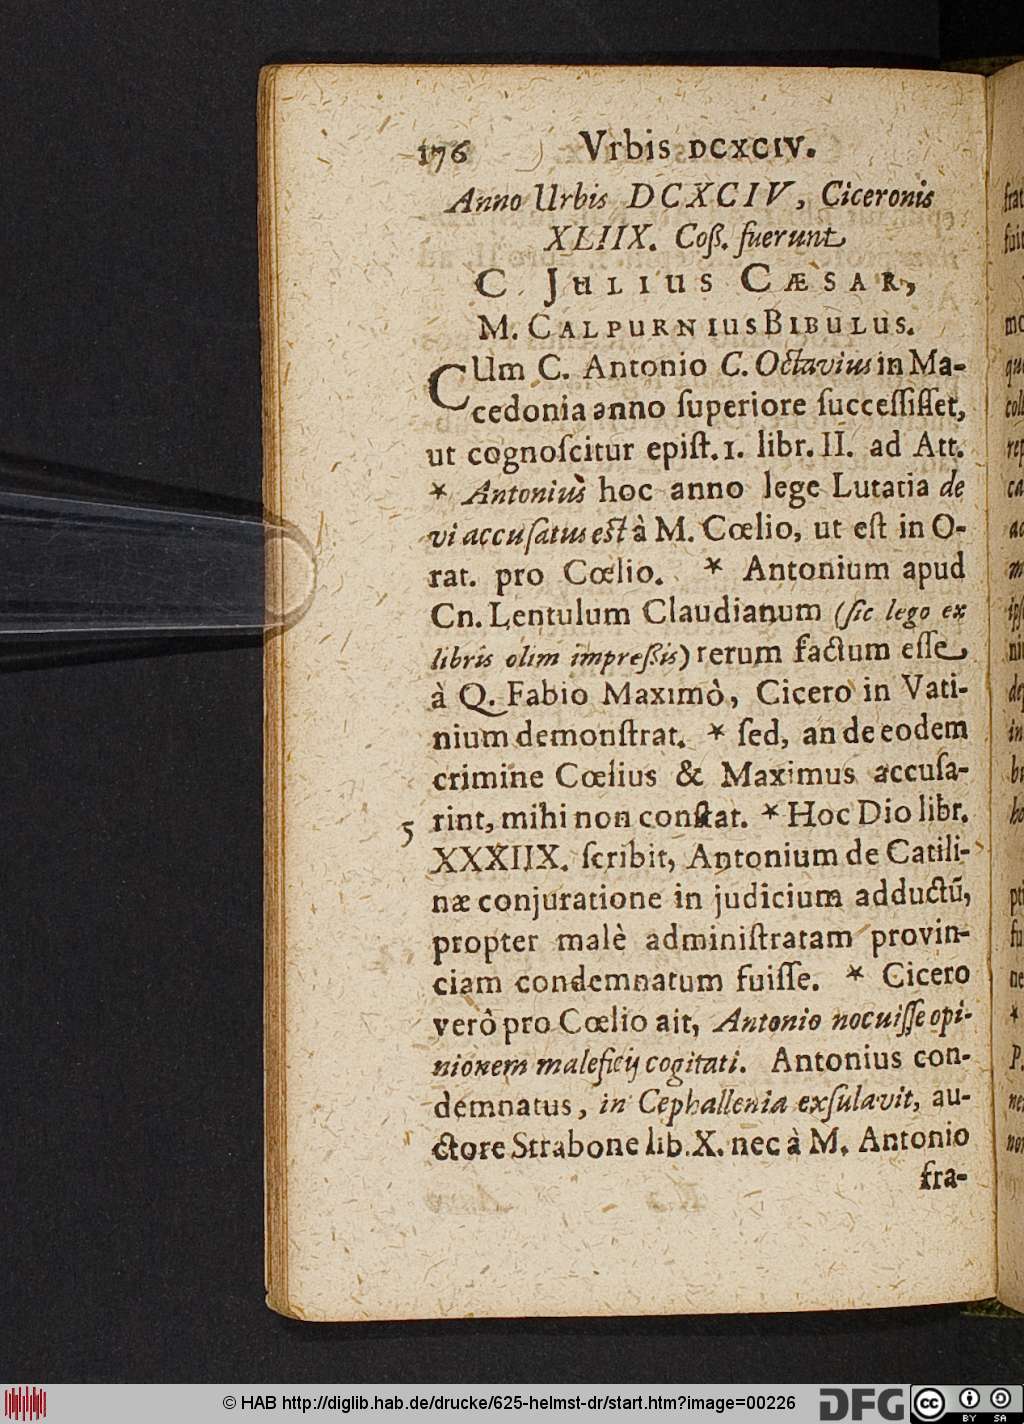 176 Vrbis DCXCIV.
Anno Urbis DCXCIV, Ciceronis
XLIIX. Coß. fuerunt
C. JULIUS CÆSAR,
M. CALPURNIUS BIBULUS.
CUm C. Antonio C. Octavius in Ma-
cedonia anno ſuperiore ſucceſſiſſet,
ut cognoſcitur epiſt. 1. libr. II. ad Att.
* Antonius hoc anno lege Lutatia de
vi accuſatus eſt à M. Cœlio, ut eſt in O-
rat. pro Cœlio. * Antonium apud
Cn. Lentulum Claudianum (ſic lego ex
libris olim impreßis) rerum factum eſſe
à Q. Fabio Maximo, Cicero in Vati-
nium demonſtrat. * ſed, an de eodem
crimine Cœlius & Maximus accuſa-
5 rint, mihi non conſtat. * Hoc Dio libr.
XXXIIX. ſcribit, Antonium de Catili-
næ conjuratione in judicium adductũ,
propter malè adminiſtratam provin-
ciam condemnatum fuiſſe. * Cicero
verò pro Cœlio ait, Antonio nocuiſſe opi-
nionem maleficij cogitati. Antonius con-
demnatus, in Cephallenia exſulavit, au-
ctore Strabone lib. X. nec à M. Antonio
fra-
© HAB http://diglib.hab.de/drucke/625-helmst-dr/start.htm?image=00226
DFG
cc
BY SA